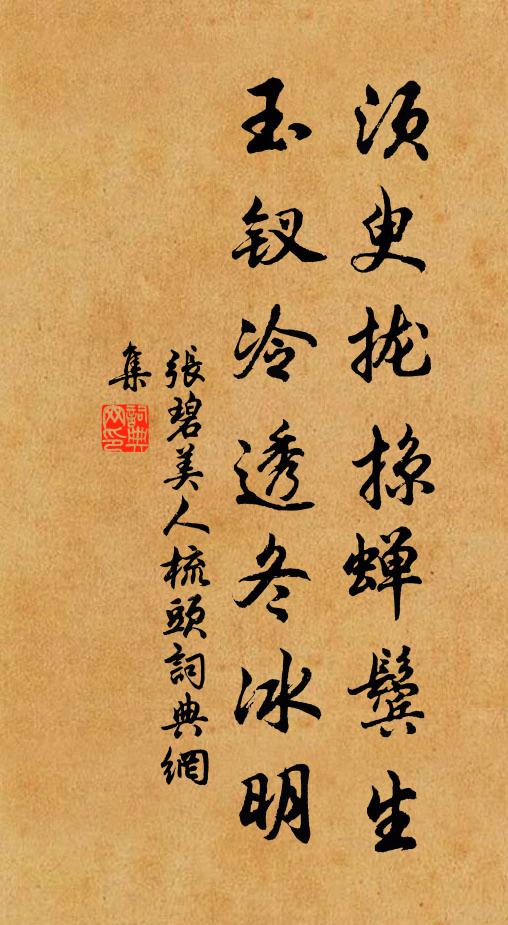 须臾拢掠蝉鬓生
玉钗冷透冬冰明
張碧美人梳頭詞典網
集
詞典
网印